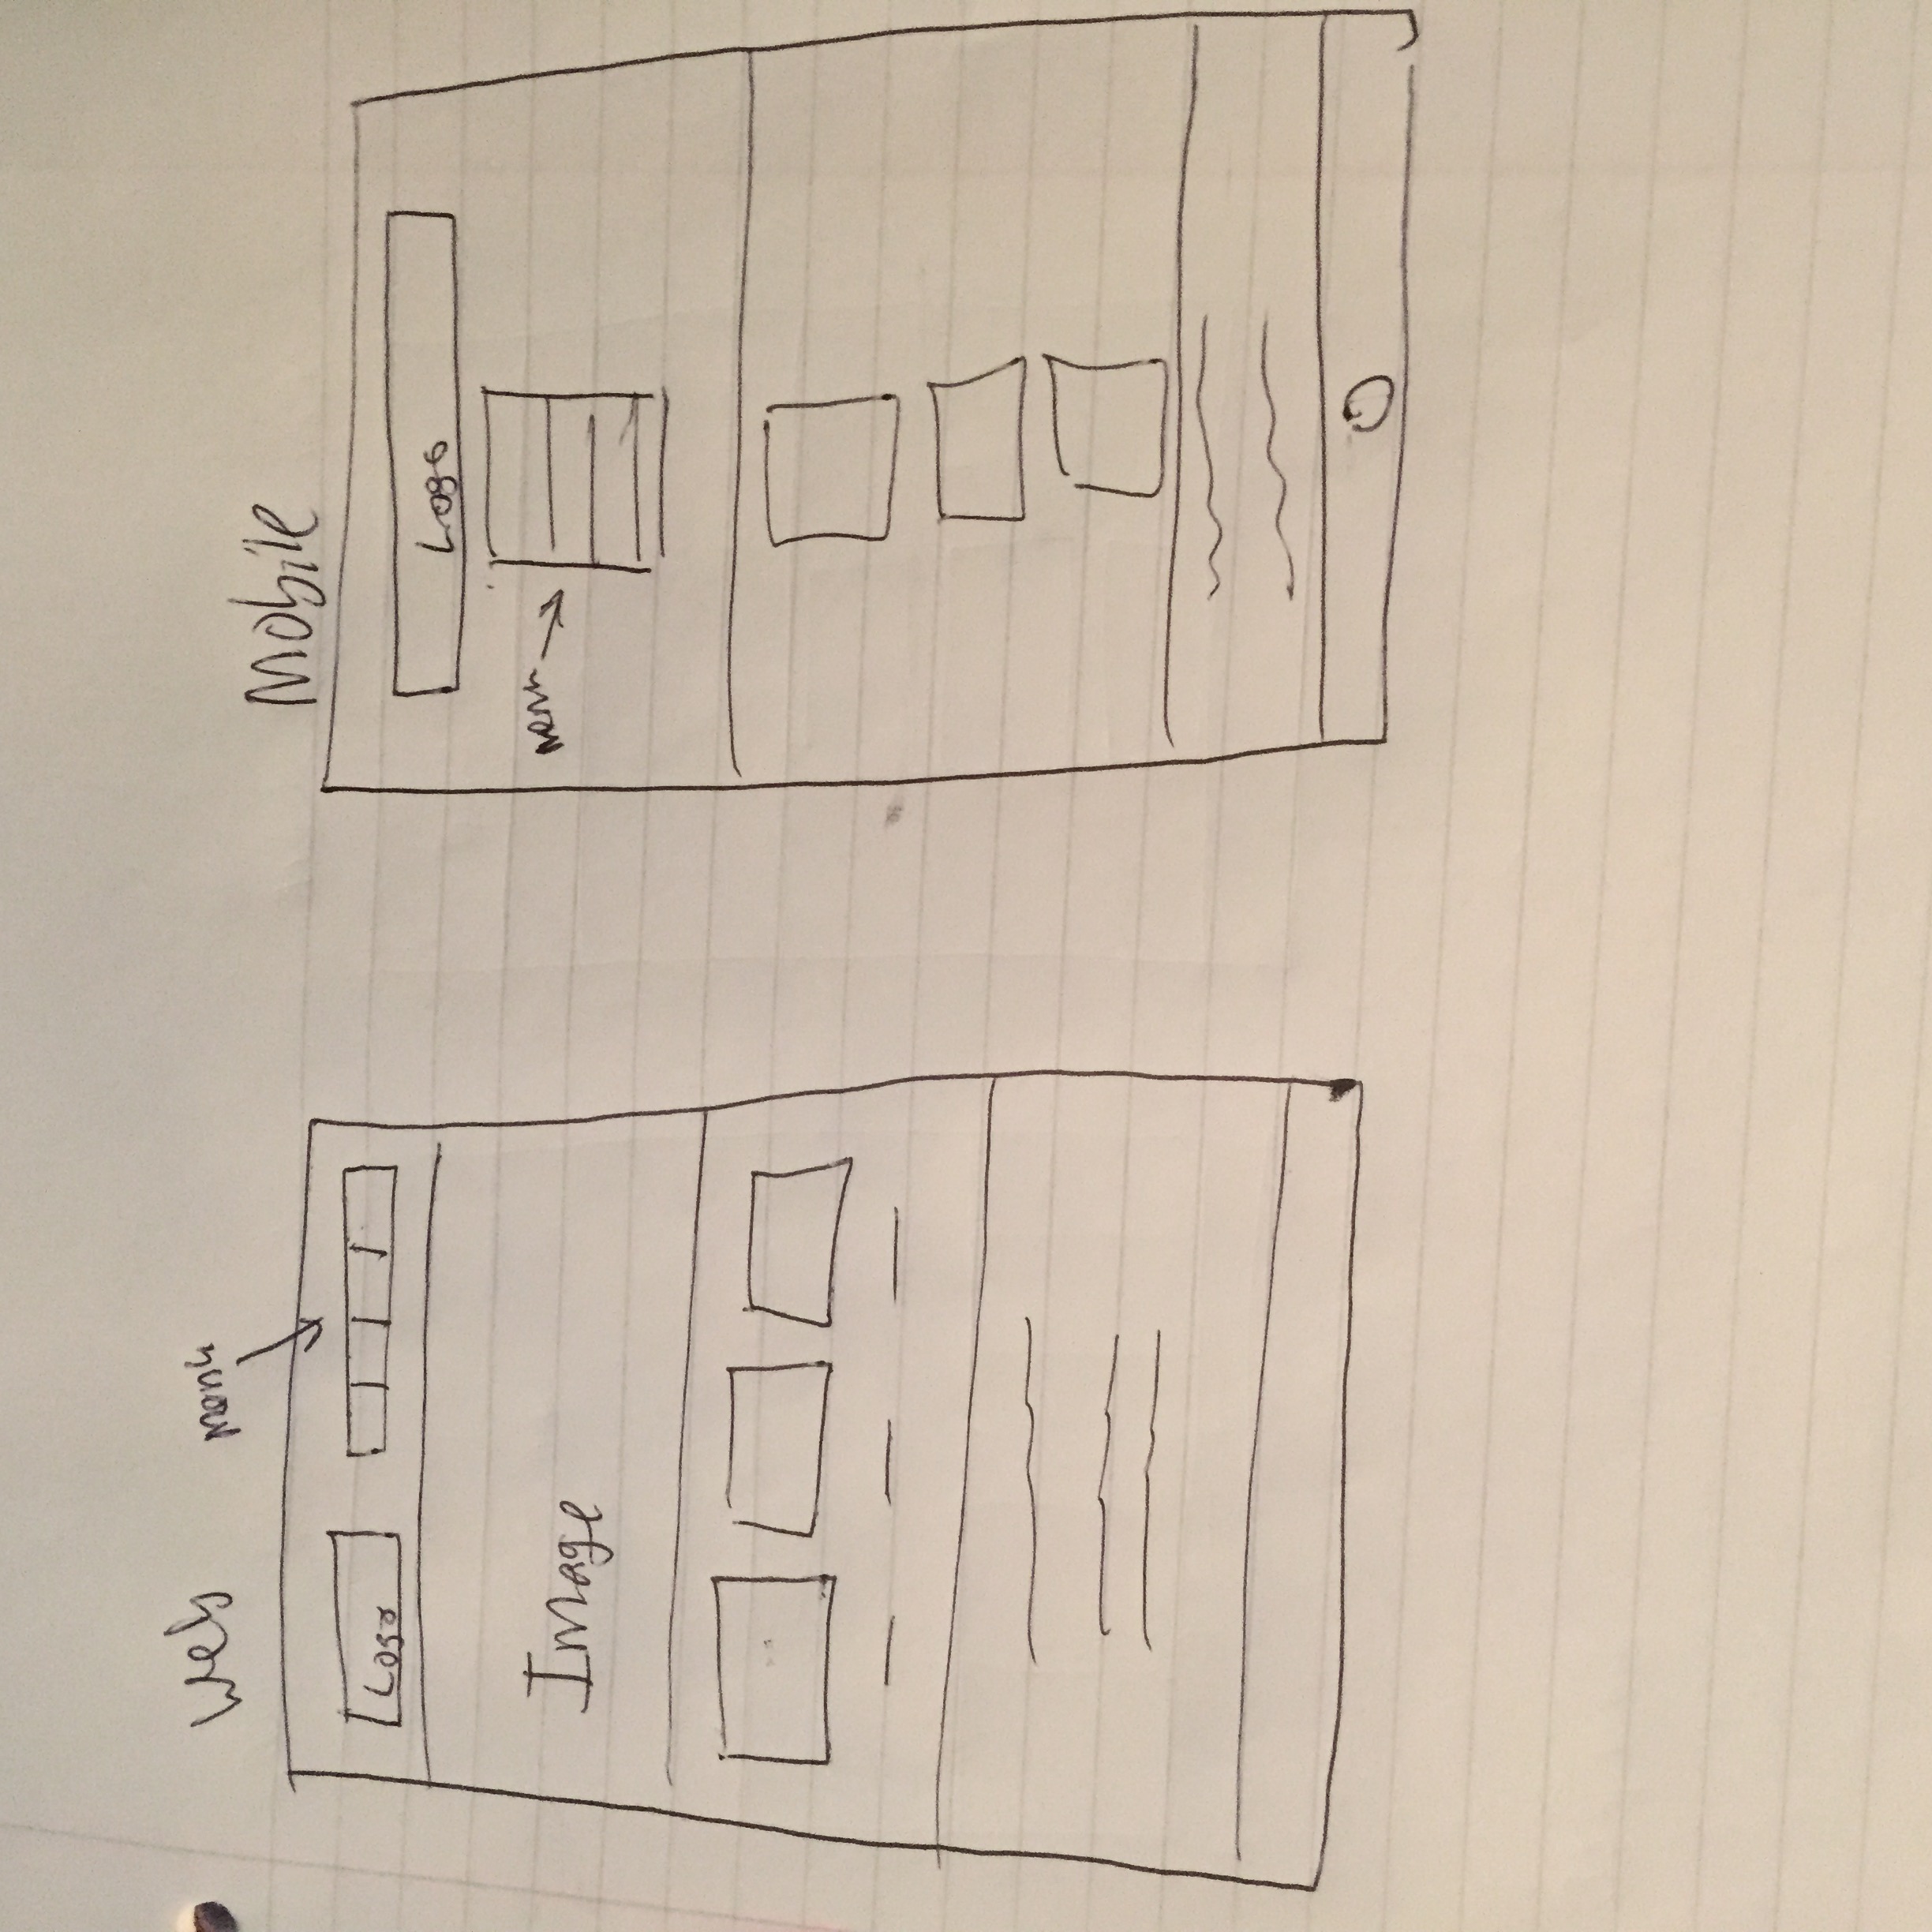 Web
menu
Logo
Image
Mobile
Logo
menu